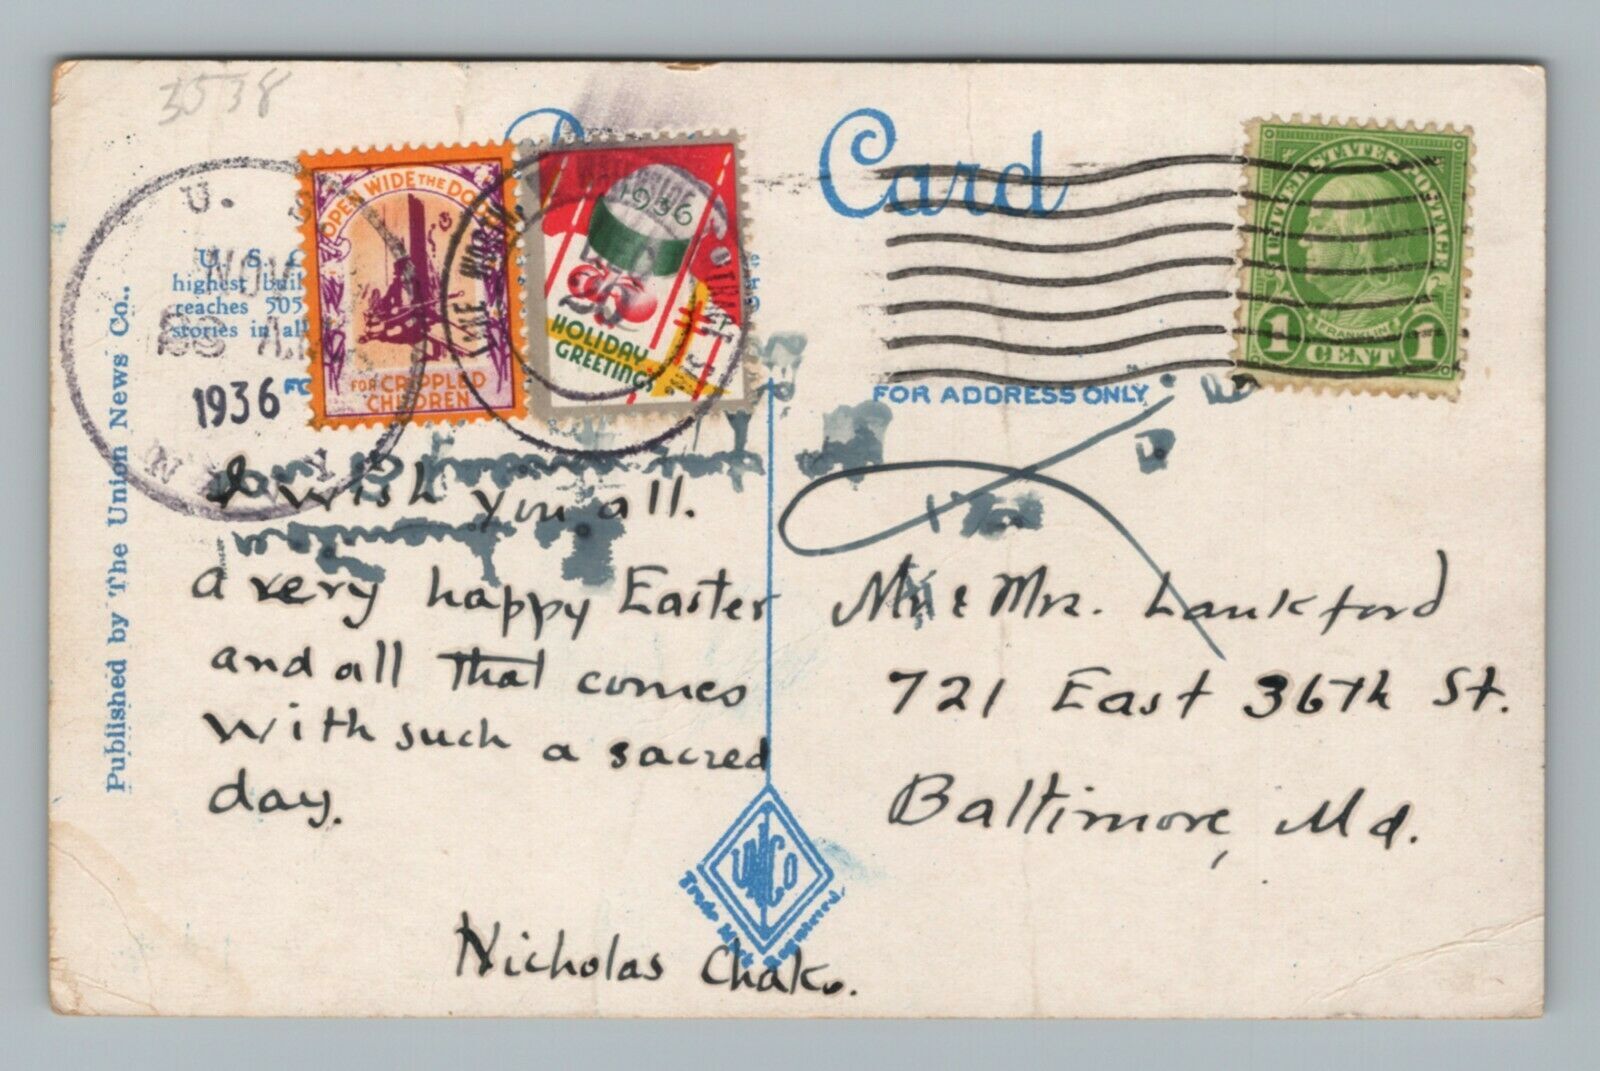 3538
Card
U.
NOV
1936
N Y
U. S.
highest buil
reaches 505
stories in all
OPEN WIDE THE DO
FOR CRIPPLED
CHILDREN
LAKE WORTH
1936
HOLIDAY
GREETINGS
UNITED STATES POSTAGE
FRANKLIN
1 CENT 1
FOR ADDRESS ONLY
Published by The Union News Co.,
I wish you all.
a very happy Easter
and all that comes
with such a sacred
day.
Nicholas Chako.
Mr & Mrs. Lankford
721 East 36th St.
Baltimore, Md.
UNCo
Trade Mark Registered.